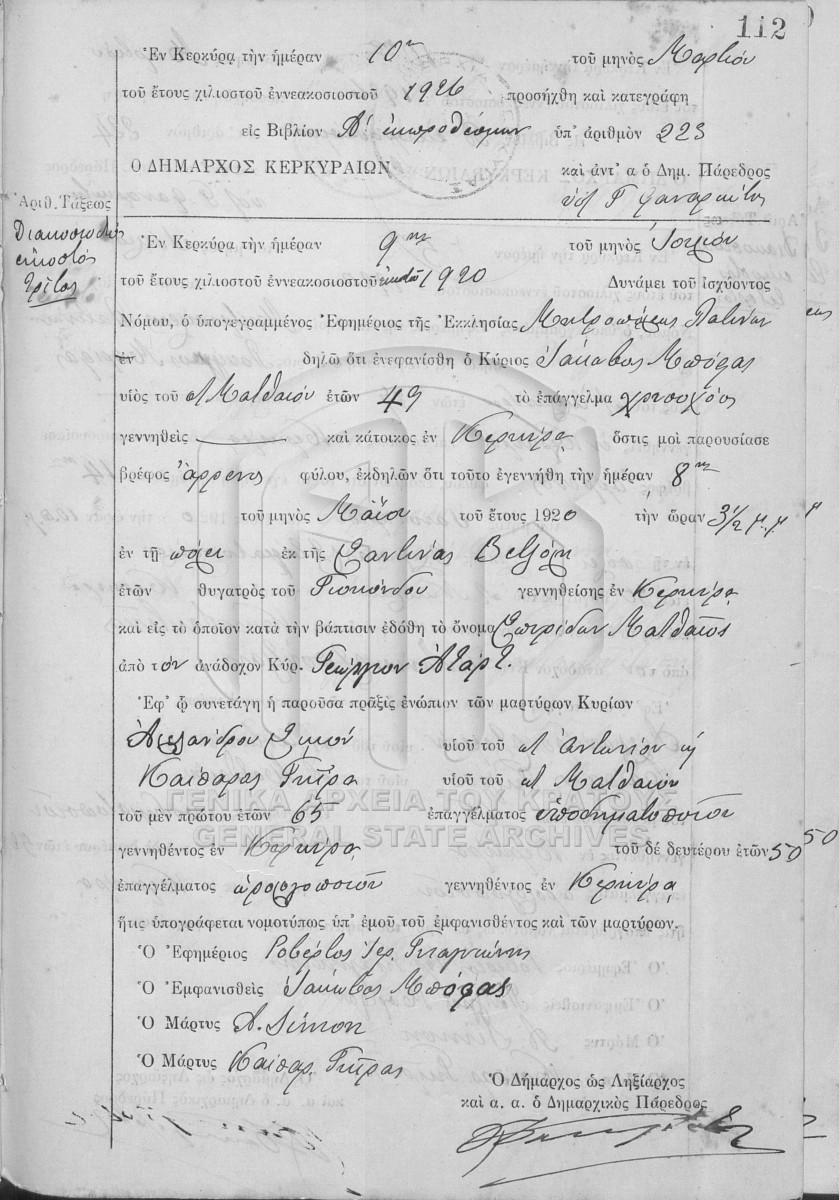 112
Ἐν Κερκύρᾳ τὴν ἡμέραν 10ην τοῦ μηνὸς Μαρτίου
τοῦ ἔτους χιλιοστοῦ ἐννεακοσιοστοῦ 1926 προσήχθη καὶ κατεγράφη
εἰς Βιβλίον Α' ἐκπροθέσμων ὑπ' ἀριθμὸν 223
Ο ΔΗΜΑΡΧΟΣ ΚΕΡΚΥΡΑΙΩΝ καὶ ἀντ' α ὁ Δημ. Πάρεδρος
Ἀριθ. Τάξεως
Διακοσιοστός
εἰκοστός
τρίτος
Ἐν Κερκύρᾳ τὴν ἡμέραν 9ην τοῦ μηνὸς Ἰουνίου
τοῦ ἔτους χιλιοστοῦ ἐννεακοσιοστοῦ 1920 Δυνάμει τοῦ ἰσχύοντος
Νόμου, ὁ ὑπογεγραμμένος Ἐφημέριος τῆς Ἐκκλησίας Μητροπόλεως Λατίνων
ἐν δηλῶ ὅτι ἐνεφανίσθη ὁ Κύριος Ἰάκωβος Μπόρας
υἱὸς τοῦ Ματθαίου ἐτῶν 49 τὸ ἐπάγγελμα χρυσοχόος
γεννηθεὶς καὶ κάτοικος ἐν Κερκύρᾳ ὅστις μοὶ παρουσίασε
βρέφος ἄρρενος φύλου, ἐκδηλῶν ὅτι τοῦτο ἐγεννήθη τὴν ἡμέραν 8ην
τοῦ μηνὸς Μαΐου τοῦ ἔτους 1920 τὴν ὥραν 3½ μ.μ.
ἐν τῇ πόλει ἐκ τῆς Σαντίνας
ἐτῶν θυγατρὸς τοῦ Γιοκόνδου γεννηθείσης ἐν Κερκύρᾳ
καὶ εἰς τὸ ὁποῖον κατὰ τὴν βάπτισιν ἐδόθη τὸ ὄνομα Σπυρίδων Ματθαῖος
ἀπὸ τὸν ἀνάδοχον Κύρ. Γεώργιον Ἀτάρτ.
Ἐφ' ᾧ συνετάγη ἡ παροῦσα πρᾶξις ἐνώπιον τῶν μαρτύρων Κυρίων
Ἀλεξάνδρου υἱοῦ τοῦ Ἀντωνίου
Καίσαρος Γκίρα υἱοῦ τοῦ Ματθαίου
ΓΕΝΙΚΑ ΑΡΧΕΙΑ ΤΟΥ ΚΡΑΤΟΥΣ
τοῦ μὲν πρώτου ἐτῶν 65 ἐπαγγέλματος ὑποδηματοποιοῦ
GENERAL STATE ARCHIVES
γεννηθέντος ἐν Κερκύρᾳ τοῦ δὲ δευτέρου ἐτῶν 50 50
ἐπαγγέλματος ὡρολογοποιοῦ γεννηθέντος ἐν Κερκύρᾳ
ἥτις ὑπογράφεται νομοτύπως ὑπ' ἐμοῦ τοῦ ἐμφανισθέντος καὶ τῶν μαρτύρων.
Ὁ Ἐφημέριος Ροβέρτος Ἱερ.
Ὁ Ἐμφανισθεὶς Ἰάκωβος Μπόρας
Ὁ Μάρτυς A. Simon
Ὁ Μάρτυς Καίσαρ Γκίρας
Ὁ Δήμαρχος ὡς Ληξίαρχος
καὶ α. α. ὁ Δημαρχικὸς Πάρεδρος